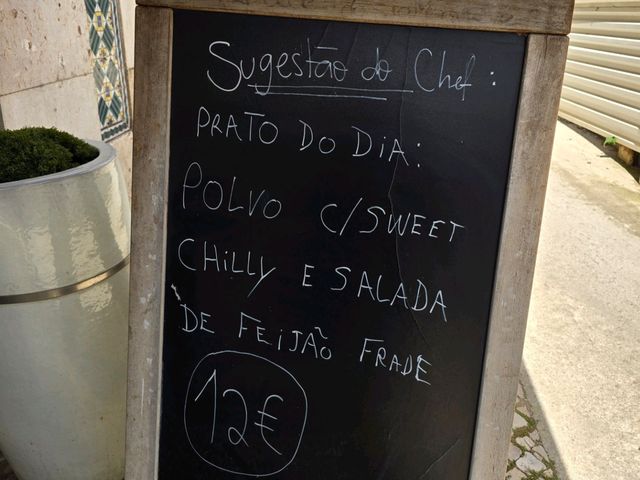 Sugestão do Chef:
PRATO DO DIA:
POLVO C/SWEET
CHILLY E SALADA
DE FEIJÃO FRADE
12€